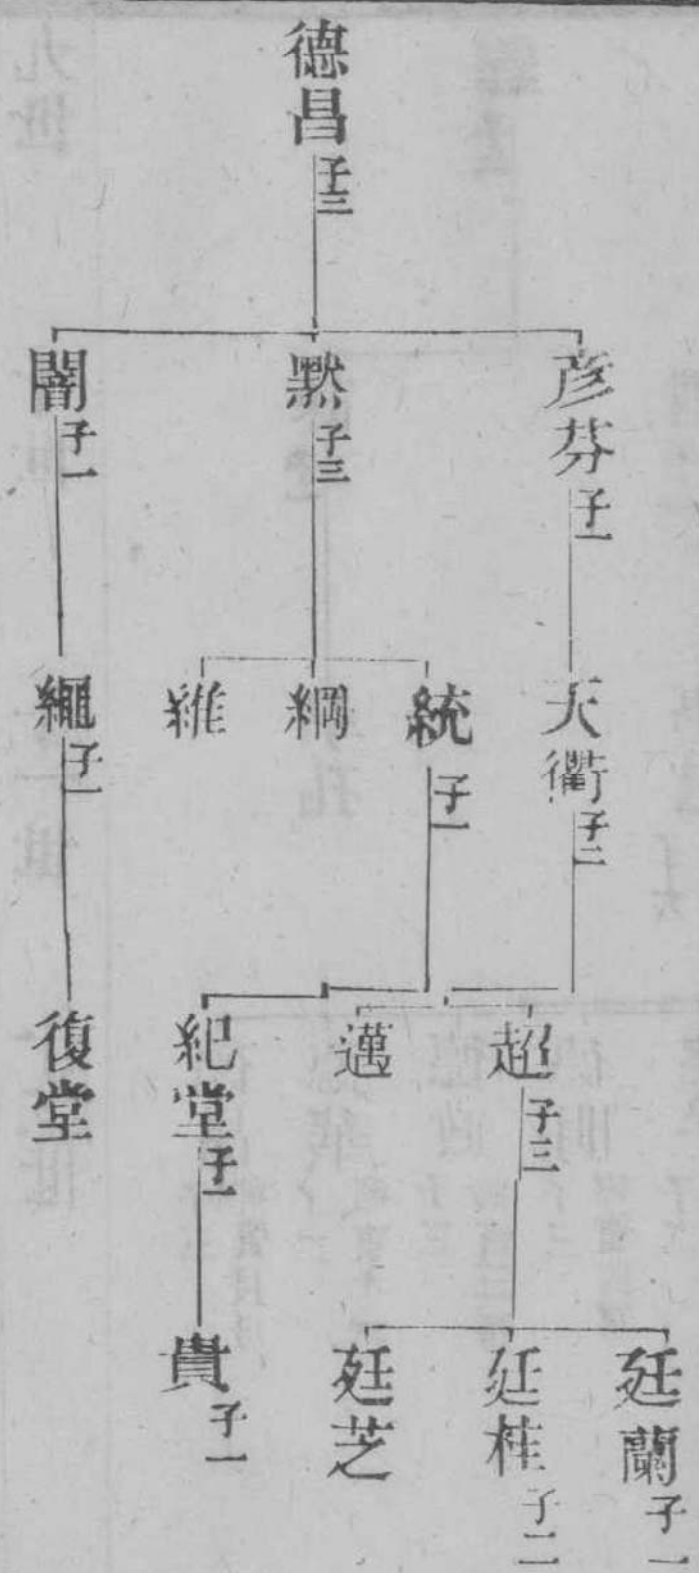 德昌 子三
彦芬 子一
黙 子三
闇 子一
天衢 子二
統 子一
綱
維
繩 子一
超 子三
邁
紀堂 子一
復堂
廷蘭 子一
廷桂 子二
廷芝
貴 子一